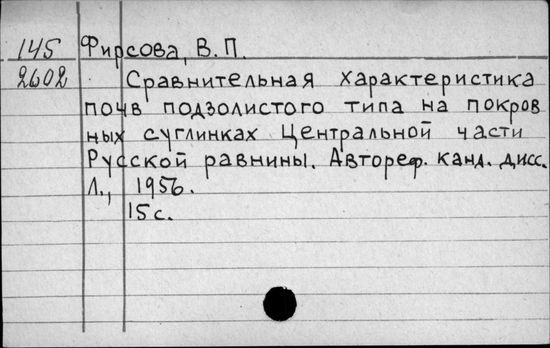 145 Фирсова, В.П.
2602 Сравнительная характеристика
почв подзолистого типа на покров
ных суглинках Центральной части
Русской равнины. Автореф. канд. дисс.
Л., 1956.
15 с.